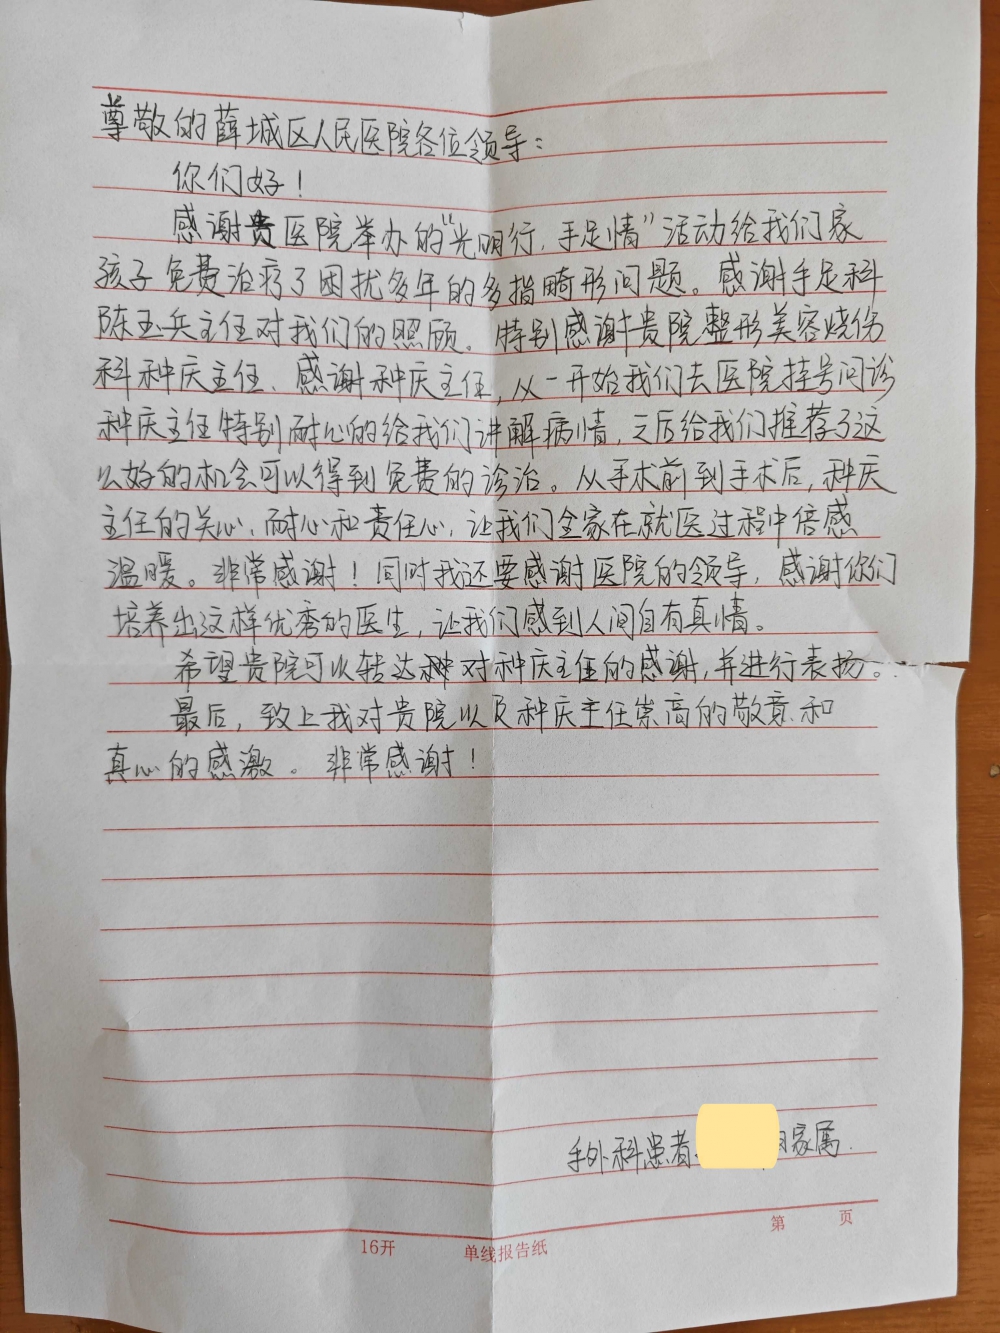 尊敬的薛城区人民医院各位领导：
你们好！
感谢贵医院举办的“光明行，手足情”活动给我们家
孩子免费治疗了困扰多年的多指畸形问题。感谢手足科
陈玉兵主任对我们的照顾。特别感谢贵院整形美容烧伤
科种庆主任、感谢种庆主任，从一开始我们去医院挂号问诊
种庆主任特别耐心的给我们讲解病情，之后给我们推荐了这
么好的机会可以得到免费的诊治。从手术前到手术后，种庆
主任的关心、耐心和责任心，让我们全家在就医过程中倍感
温暖。非常感谢！同时我还要感谢医院的领导，感谢你们
培养出这样优秀的医生，让我们感到人间自有真情。
希望贵院可以转达对种庆主任的感谢，并进行表扬。
最后，致上我对贵院以及种庆主任崇高的敬意和
真心的感激。非常感谢！
手外科患者 家属
第 页
16开 单线报告纸